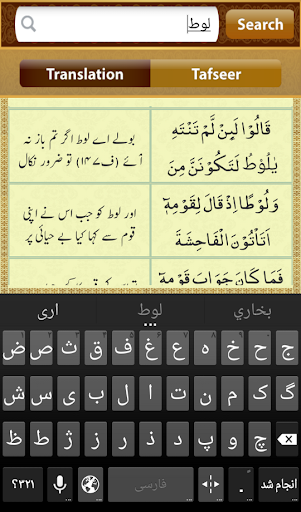 لوط
Search
Translation
Tafseer
قَالُوْا لَىِٕنْ لَّمْ تَنْتَهِ
يٰلُوْطُ لَتَكُوْنَنَّ مِنَ
بولے اے لوط اگر تم باز نہ
آئے (ف۱۴۷) تو ضرور نکال
وَلُوْطًا اِذْ قَالَ لِقَوْمِهٖۤ
اَتَاْتُوْنَ الْفَاحِشَةَ
اور لوط کو جب اس نے اپنی
قوم سے کہا کیا بے حیائی پر
فَمَا كَانَ جَوَابَ قَوْمِهٖۤ
بخاري
لوط
اری
ج ح خ ه ع غ ف ق ث ص ض
گ ک م ن ت ا ل ب ی س ش
چ و پ د ذ ر ز ژ ط ظ
انجام شد
.
فارسی
؟۳۲۱